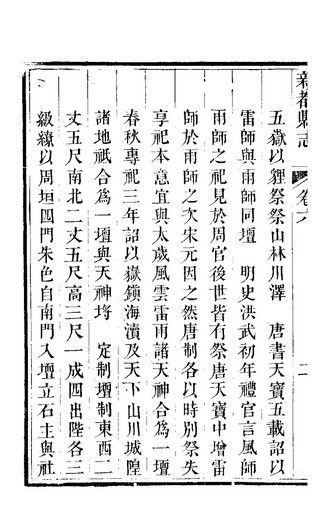 新都縣志
卷六
二
五嶽以貍祭祭山林川澤 唐書天寶五載詔以
雷師與雨師同壇 明史洪武初年禮官言風師
雨師之祀見於周官後世皆有祭唐天寶中增雷
師於雨師之次宋元因之然唐制各以時別祭失
享祀本意宜與太歲風雲雷雨諸天神合爲一壇
春秋專祀三年詔以嶽鎮海瀆及天下山川城隍
諸地祇合爲一壇與天神埒 定制壇制東西二
丈五尺南北二丈五尺高三尺一成四出陛各三
級繚以周垣四門朱色自南門入壇立石主與社